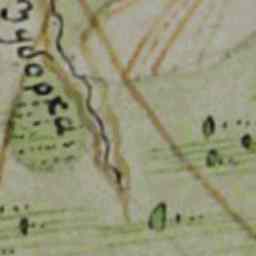 Зуборка